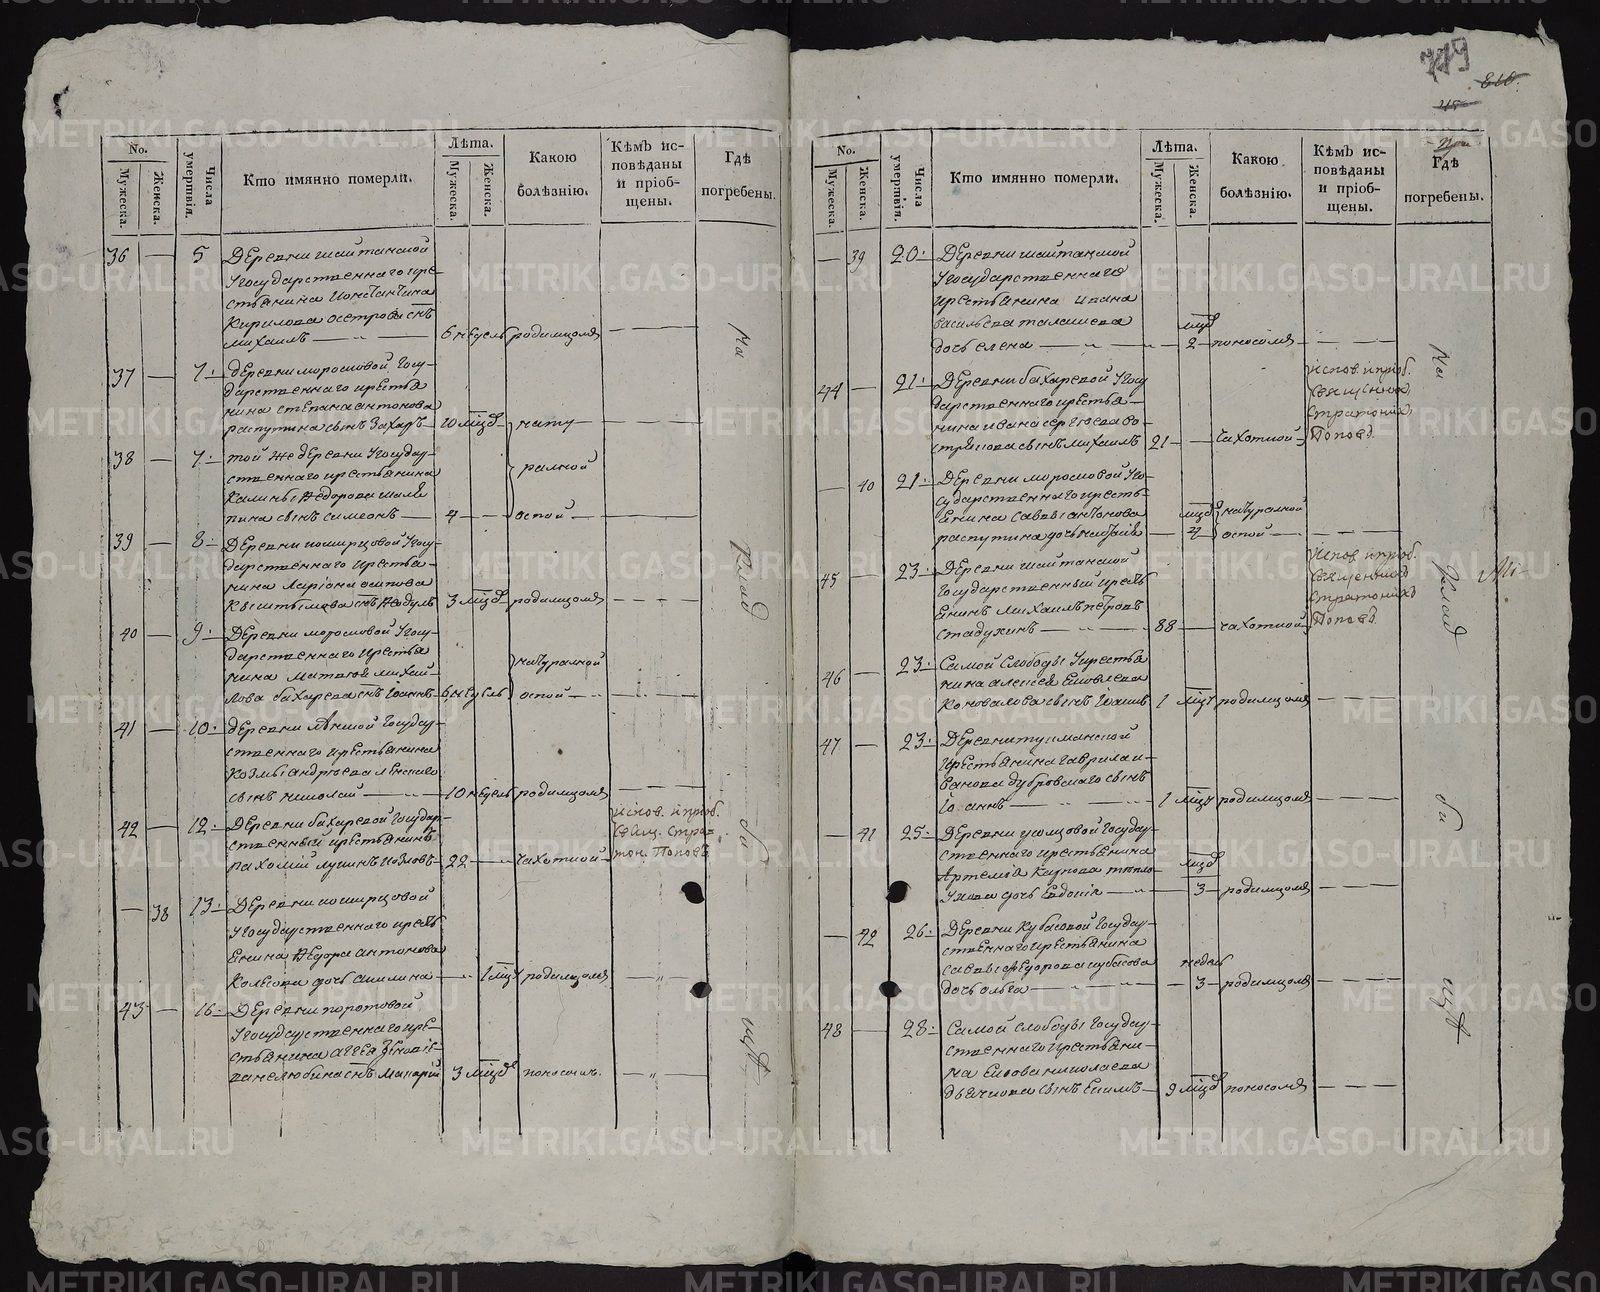 779
No.
Мужеска.
Женска.
Числа умертвія.
Кто имянно померли.
Лѣта.
Мужеска.
Женска.
Какою болѣзнію.
Кѣмъ ис-
повѣданы
и пріоб-
щены.
Гдѣ
погребены.
36 — 5 Деревни шайтанской
государственнаго кре-
стьянина Константина
Кирилова Острова снъ
Михаилъ — 6 недель родимцомъ
37 — 7. деревни морошовой госу-
дарственнаго крестья
нина степана антонова
распутина сынъ Захаръ — 10 мцовъ нату
38 — 7. той же деревни государ-
ственнаго крестьянина ралной
Калины Федорова
сынъ симеонъ — 4 — оспой
39 — 8. Деревни коширцовой госу-
дарственнаго крестья-
нина Ларіона осипова
снъ Федулъ 3 мцовъ родимцомъ
40 — 9. Деревни морошовой госу-
дарственнаго крестья
нина Матвея михай- натуралной
лова бахарева снъ Іоаннъ 6 недель оспой
41 — 10. деревни государ-
ственнаго крестьянина
Козмы андреева ленскаго
сынъ николай — 10 недель родимцомъ
42 — 12. Деревни бахаревой государ-
ственный крестьянинъ
пахомій лукинъ — 22 — чахоткой
испов. и приоб.
свящ. Стра-
тон. Поповъ
— 38 13. Деревни коширцовой
государственнаго кресть
янина Федора антонова
дочь акилина — 1 мцъ родимцомъ
43 — 16. Деревни поротовой
государственнаго кре-
стьянина аггея Зеновіе-
ва нелюбина снъ Макарій 3 мцовъ поносомъ.
На
клад
би
щѣ
No.
Мужеска.
Женска.
Числа умертвія.
Кто имянно померли.
Лѣта.
Мужеска.
Женска.
Какою
болѣзнію.
Кѣмъ ис-
повѣданы
и пріоб-
щены.
Гдѣ
погребены.
— 39 20. Деревни шайтанской
государственнаго
крестьянина ивана
васильева талашева мцъ
дочь елена — 2 — поносомъ
44 — 21. Деревни бахаревой госу
дарственнаго крестья-
нина ивана сергеева во-
стрякова сынъ михаилъ 21 — чахоткой
испов и приоб.
священник
стратоник
Попов
— 40 21. Деревни морошовой го-
сударственнаго кресть-
янина Саввы антонова мцов натуралной
распутина дочь — 4 — оспой
45 — 23. Деревни шайтанской
государственный кресть
янинъ михаилъ петровъ
стадухинъ — 88 — чахоткой
испов и приоб.
священник
стратоник
Попов
46 — 23. Самой слободы крестья
нина алексея яковлева
Коновалова сынъ Іоаннъ 1 мцъ родимцомъ
47 — 23. Деревни туманской
крестьянина гаврила и-
ванова дубровскаго сынъ
Іоаннъ — 1 мцъ родимцомъ
— 41 25. Деревни государ-
ственнаго крестьянина
Артемія Карпова тепло- мцов
ухова дочь Евдокія — 3 — родимцомъ
— 42 26. Деревни Кубасовой государ-
ственнаго крестьянина
саввы федорова кубасова недель
дочь ольга — 3 — родимцомъ
48 — 28. Самой слободы государ-
ственнаго крестьяни-
на николаева
дьячкова сынъ Екимъ — 9 мцовъ поносомъ
На
клад
би
щѣ